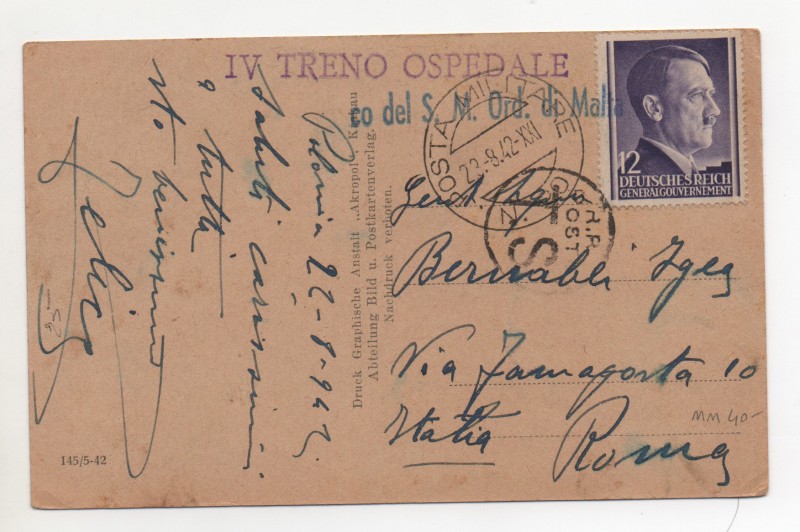 IV TRENO OSPEDALE
co del S. M. Ord. di Malta
POSTA MILITARE N.
22-8-42-XXI
12
DEUTSCHES REICH
GENERALGOUVERNEMENT
Polonia 22-8-942
Saluti carissimi
a tutti
sto benissimo
Felice
Druck Graphische Anstalt „Akropol", Krakau
Abteilung Bild u. Postkartenverlag.
Nachdruck verboten.
Bernabei
Via Famagosta 10
Italia Roma
MM 40-
145/5-42